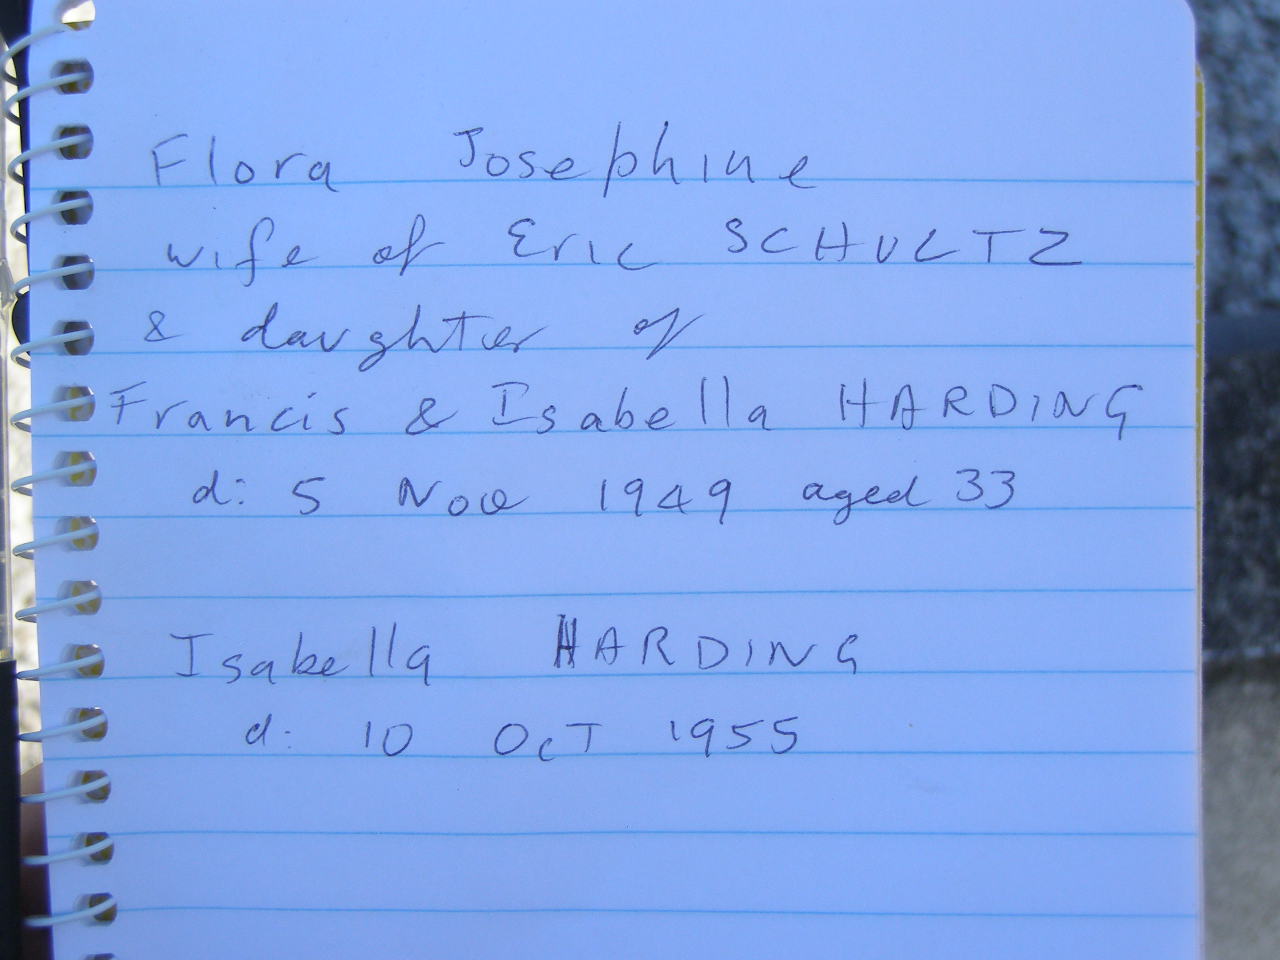 Flora Josephine
wife of Eric SCHULTZ
& daughter of
Francis & Isabella HARDING
d: 5 Nov 1949 aged 33
Isabella HARDING
d: 10 Oct 1955